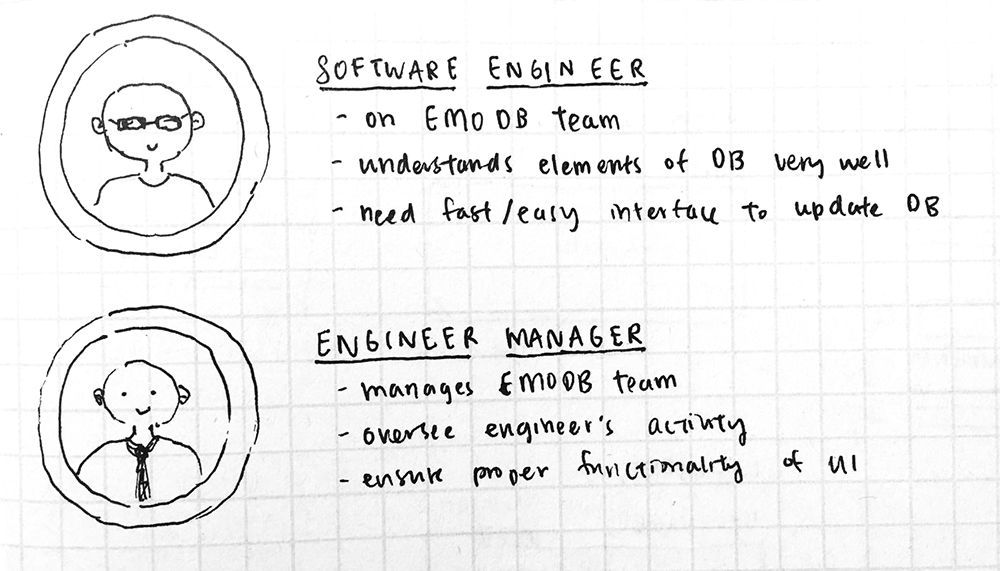 SOFTWARE ENGINEER
- on EMODB team
- understands elements of DB very well
- need fast/easy interface to update DB
ENGINEER MANAGER
- manages EMODB team
- oversee engineer's activity
- ensure proper functionality of UI